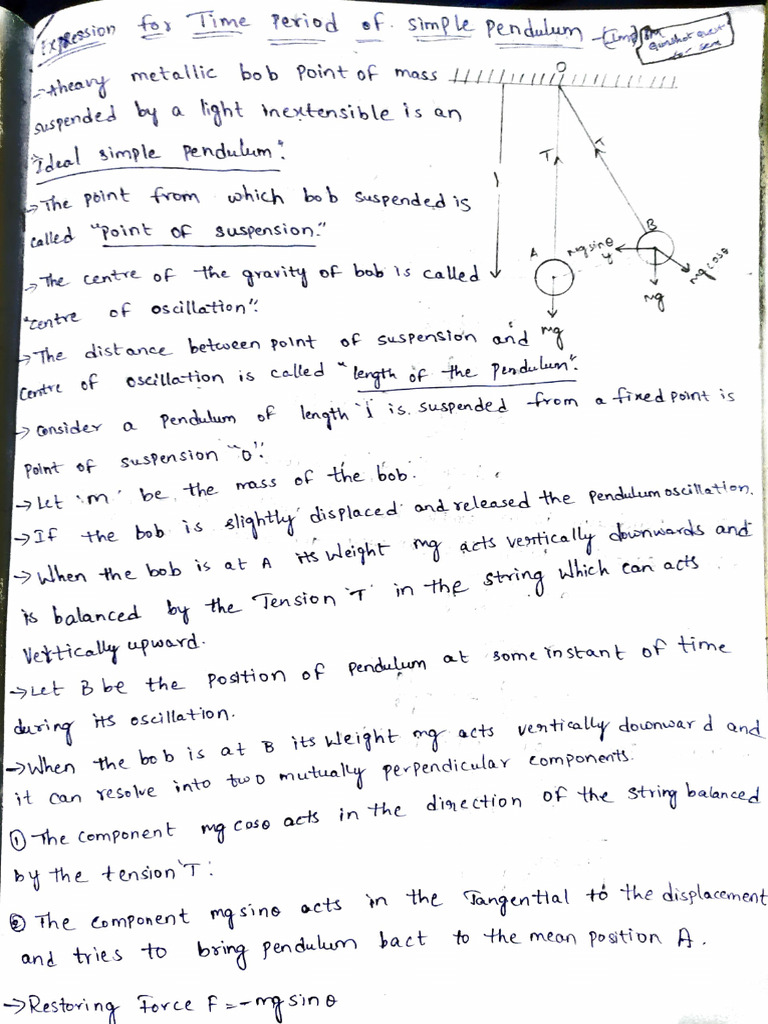 Expression for Time Period of simple pendulum -(Imp)
Gunshot quest
for sem
→ A heavy metallic bob point of mass
suspended by a light inextensible is an
"Ideal simple pendulum".
→ The point from which bob suspended is
called "point of suspension."
→ The centre of the gravity of bob is called
"centre of oscillation".
→ The distance between point of suspension and
centre of oscillation is called "length of the pendulum".
O
l
T
T
A
B
mg sinθ
y
mg cosθ
mg
mg
→ consider a pendulum of length 'l' is suspended from a fixed point is
point of suspension "O".
→ Let 'm' be the mass of the bob.
→ If the bob is slightly displaced and released the pendulum oscillation.
→ When the bob is at A its weight mg acts vertically downwards and
is balanced by the Tension 'T' in the string which can acts
vertically upward.
→ Let B be the position of pendulum at some instant of time
during its oscillation.
→ When the bob is at B its weight mg acts vertically downward and
it can resolve into two mutually perpendicular components.
① The component mg cosθ acts in the direction of the string balanced
by the tension 'T'.
② The component mg sinθ acts in the Tangential to the displacement
and tries to bring pendulum bact to the mean position A.
→ Restoring Force F = -mg sinθ